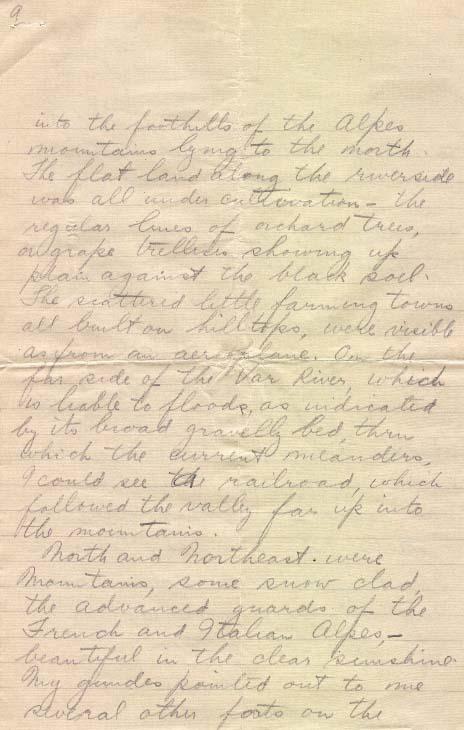 9
into the foothills of the Alpes
mountains lying to the north.
The flat land along the riverside
was all under cultivation - the
regular lines of orchard trees,
or grape trellises showing up
plain against the black soil.
The scattered little farming towns
all built on hilltops, were visible
as from an aeroplane. On the
far side of the Var River, which
is liable to floods, as indicated
by its broad gravelly bed, thru
which the current meanders,
I could see the railroad, which
followed the valley far up into
the mountains.
North and Northeast were
Mountains, some snow clad,
the advanced guards of the
French and Italian Alpes, -
beautiful in the clear sunshine.
My guides pointed out to me
several other forts on the